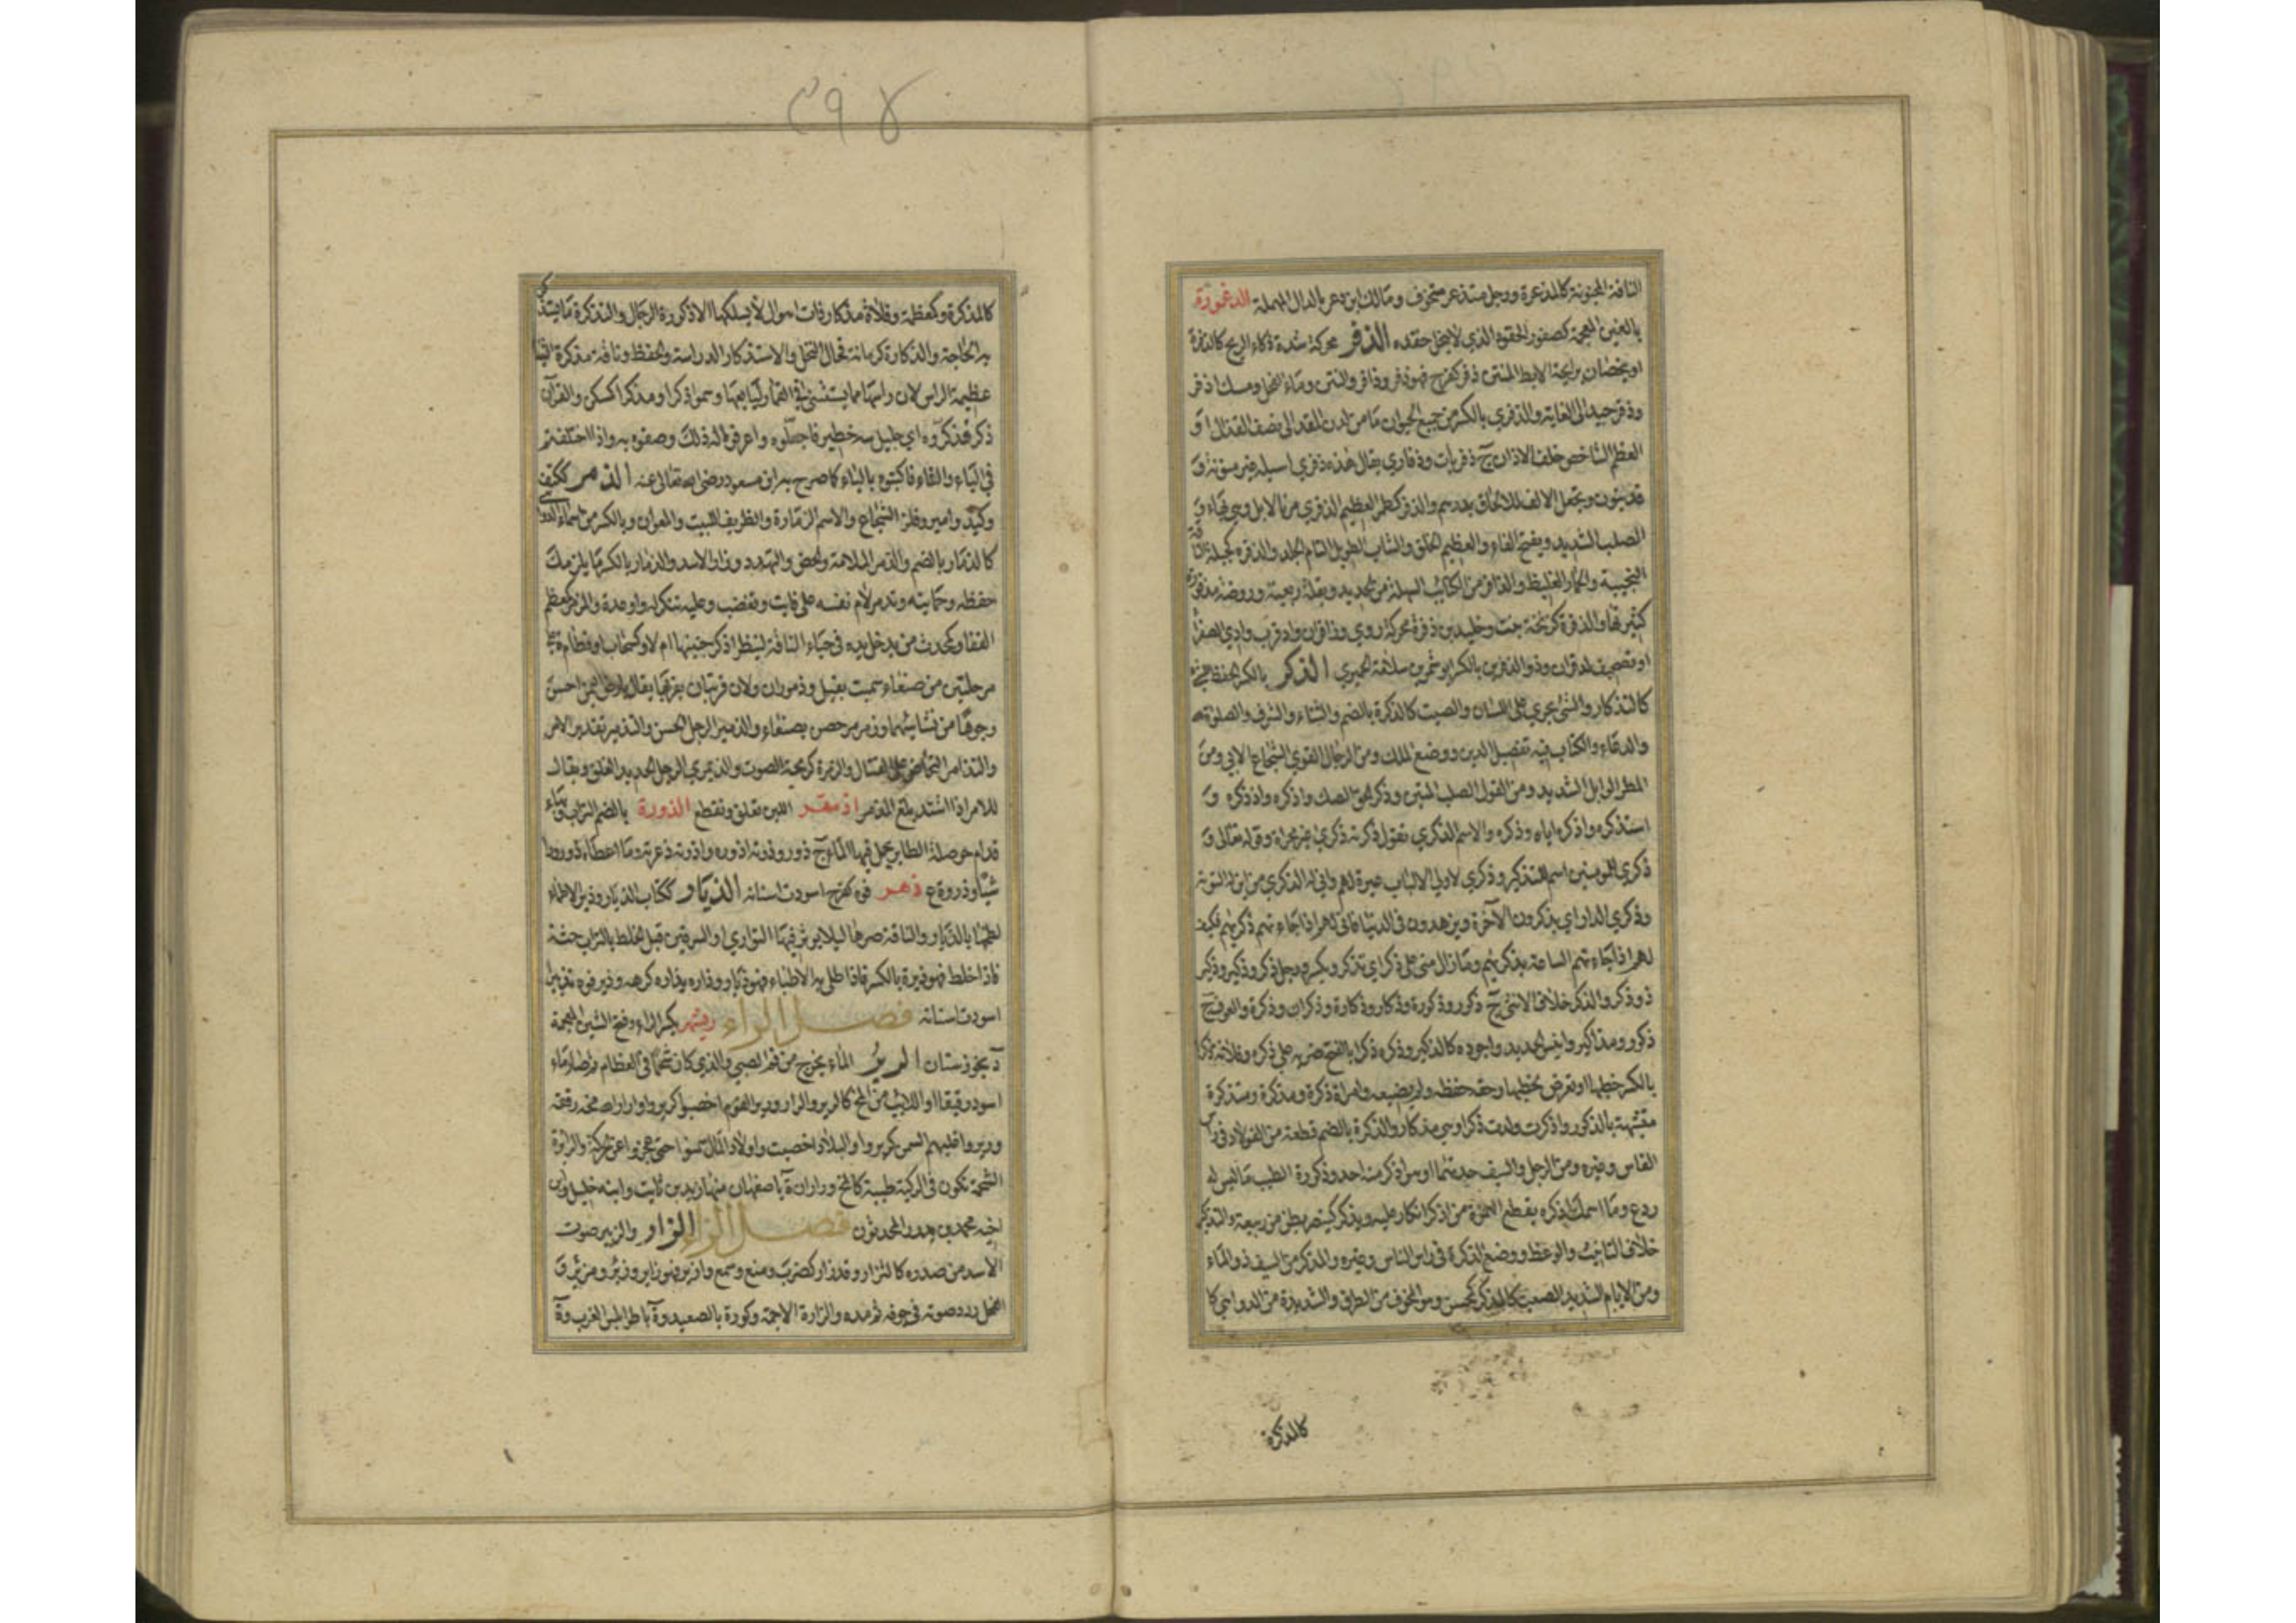 الناقة المجنونة كالمذعرة ورجل متذعر متخوف ومالك ابن دعر بالدال المهملة الذغمورة
بالغين المعجمة كعصفور الحقود الذي لا ينحل حقده الذفر محركة شدة ذكاء الريح كالذفرة
او يخصان برايحة الابط المنتن ذفر كفرح فهو ذفر وذافر والنتن وماء الفحل ومسك اذفر
وذفر جيد الى الغاية والذفري بالكسر من جميع الحيوان ما من لدن المقذ الى نصف القذال او
العظم الشاخص خلف الاذن ج ذفريات وذفاري يقال هذه ذفري اسيلة غير منونة و
قد ينون ويجعل الالف للالحاق بدرهم والذفر كطمر العظيم الذفري من الابل وهي بهاء و
الصلب الشديد وبفتح الفاء والعظيم الخلق والشاب الطويل التام الجلد والذفرة كجبلة الناقة
النجيبة والحمار الغليظ والذفراء من الكتائب السهكة من الحديد وبقلة ربعية وروضة مذفورة
كثيرتها والذفرة كزنخة نبت وخليد بن ذفرة محركة روي وذافران واد قرب وادي الصفراء
او تصحيف لدقران وذو الذفرين بالكسر ابو شمر بن سلامة الحميري الذكر بالكسر الحفظ للشيء
كالتذكار والشيء يجري على اللسان والصيت كالذكرة بالضم والثناء والشرف والصلوة لله
والدعاء والكتاب فيه تفصيل الدين ووضع الملل ومن الرجال القوي الشجاع الابي ومن
المطر الوابل الشديد ومن القول الصلب المتين وذكر الحق الصك واذكره واذدكره و
استذكره واذكره اياه وذكره والاسم الذكري تقول ذكرته ذكري غير مجراة وقوله تعالى و
ذكري للمومنين اسم للتذكير وذكري لاولي الالباب عبرة لهم واني له الذكري من اين له التوبة
وذكري الدار اي يذكرون الآخرة ويزهدون في الدنيا فاني لهم اذا جاءتهم ذكريهم فكيف
لهم اذا جاءتهم الساعة بذكريهم وما زال مني على ذكر اي تذكر ويكسر ورجل ذكر وذكير وذكير
ذو ذكر والذكر خلاف الانثي ج ذكور وذكورة وذكار وذكارة وذكران وذكرة والعوف ج
ذكور ومذاكير وايبس الحديد واجوده كالذكير وذكره ذكرا بالفتح ضربه على ذكره وفلانة ذكرا
بالكسر خطبها او تعرض لخطبتها وحقه حفظه ولم يضيعه وامراة ذكرة ومذكرة ومتذكرة
متشبهة بالذكور واذكرت ولدت ذكرا وهي مذكار والذكرة بالضم قطعة من الفولاذ في راس
الفاس وغيره ومن الرجل والسيف حدتهما وهو اذكر منه احد وذكورة الطيب ما ليس له
ردع وما اسمك اذكره بقطع الهمزة من اذكر انكار عليه ويذكر كينصر بطن من ربيعة والتذكير
خلاف التانيث والوعظ ووضع الذكرة في راس الفاس وغيره والمذكر من السيف ذو الماء
ومن الايام الشديد الصعب كالمذكر كمحسن وهو المخوف من الطرق والشديدة من الدواهي كا
كالمذكرة
٣٩٧
كالمذكرة وكمعظمة وفلاة مذكار ذات اهوال لا يسلكها الا ذكورة الرجال والتذكرة ما يستذكر
به الحاجة والذكارة كرمانة فحال النخل والاستذكار الدراسة والحفظ وناقة مذكرة الثنيا
عظيمة الراس لان راسها مما يستثنى في القمار لبايعها وسموا ذكرا ومذكرا كمسكن والقرآن
ذكر فذكروه اي جليل نبيه خطير فاجلوه واعرفوا له ذلك وصفوه به واذا اختلفتم
في الياء والتاء فاكتبوه بالياء كما صرح به ابن مسعود رضى الله تعالى عنه الذمر ككتف
وكبد وامير وفلز الشجاع والاسم الذمارة والظريف اللبيب والمعوان وبالكسر من اسماء الدواهي
كالذمار بالضم والذمر الملامة والحض والتهدد وزار الاسد والذمار بالكسر ما يلزمك
حفظه وحمايته وتذمر لام نفسه على فايت وتغضب وعليه تنكر له واوعده والمذمر كمعظم
القفا وكمحدث من يدخل يده في حياء الناقة لينظر اذكر جنينها ام لا وكسحاب او قطام ة على
مرحلتين من صنعاء سميت بقيل وذموران ولان قريتان بقربها يقال ليس بارض اليمن احسن
وجوها من نسائهما وذمرمر حصن بصنعاء والذمير الرجل الحسن والتذمير تقدير الامر
والتذامر التحاض على القتال والذمرة كزنخة الصوت والذيمري الرجل الحديد والغلق ويقال
للامر اذا اشتد بلغ المذمر اذمقر اللبن تفلق وتقطع الذورة بالضم التراب وبناء
قدام حوصلة الطاير يحمل فيها الماء ج ذور وذرته اذوره واذرته ذعرته وما اعطاه ذورورا
شيئا وذروة ع ذهر فوه كفرح اسودت اسنانه الذيار ككتاب الذيار وذير الاطباء
لطخها بالذيار والناقة صرها ليلا يوثر فيها التوادي او السرقين قبل الخلط بالتراب خثة
فاذا خلط فهو ذيرة بالكسر فاذا طلي به الاطباء فهو ذيار وذاره يذاره كرهه وذير فوه تذييرا
اسودت اسنانه فصل الراء ريشهر بكسر الراء وفتح الشين المعجمة
د بخوزستان الرير الماء يخرج من فم الصبي والذي كان شحما في العظام ثم صار ماء
اسود رقيقا او الذايب من المخ كالرير والرار ورير القوم اخصبوا كريروا وارار الله مخه رققه
وريروا غلبهم السمن كريروا والبلاد اخصبت واولاد المال سمنوا حتى عجزوا عن الحركة والرايرة
الشحمة تكون في الركبة طيبة كالمخ وراران ة باصفهان منها زيد بن ثابت وابنه خليل وابن
اخيه محمد بن بدر المحدثون فصل الزاء الزار والزئير صوت
الاسد من صدره كالتزار وقد زار كضرب ومنع وسمع وازير فهو زاير وزئر ومزئر و
الفحل ردد صوته في جوفه ثم مده والزارة الاجمة وكورة بالصعيد وة باطرابلس الغرب وة